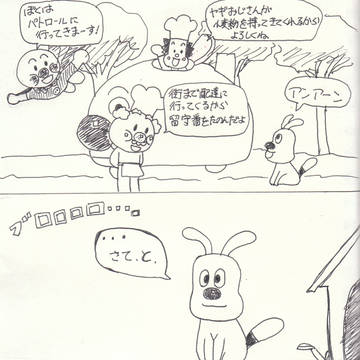 ぼくは
パトロールに
行ってきまーす!
ヤギおじさんが
小麦粉を持ってきてくれるから
よろしくね。
街まで配達に
行ってくるから
留守番をたのんだよ
アンアーン
ブロロロロ・・・.
・・・
さて、と.